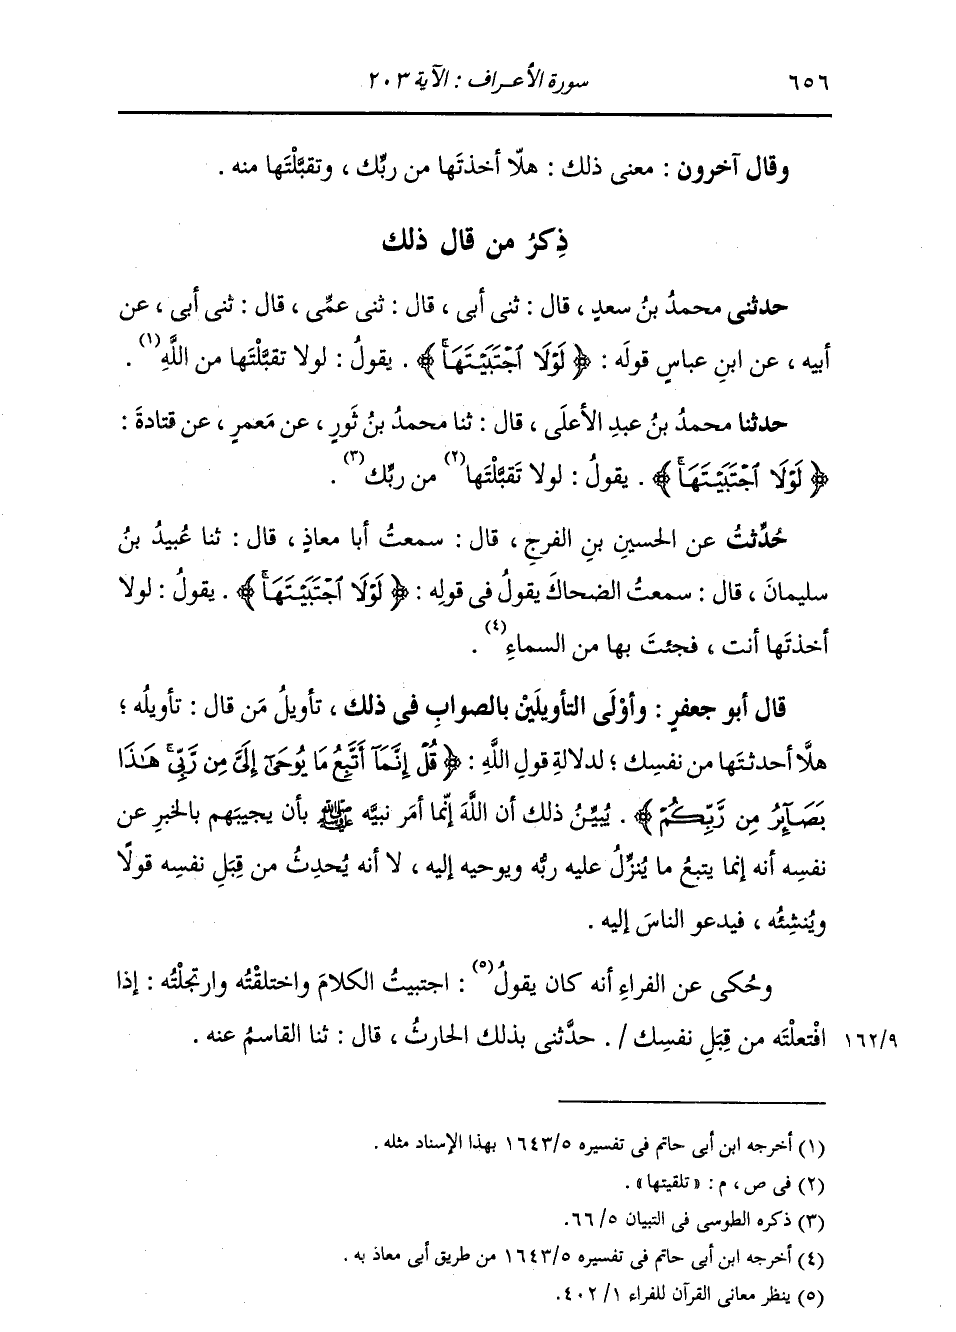 ٦٥٦ سورة الأعراف : الآية ٢٠٣
وقال آخرون : معنى ذلك : هلّا أخذتَها من ربِّك ، وتقبَّلْتَها منه .
ذِكرُ من قال ذلك
حدثنى محمدُ بنُ سعدٍ ، قال : ثنى أبى ، قال : ثنى عمِّى ، قال : ثنى أبى ، عن
أبيه ، عن ابنِ عباسٍ قولَه : ﴿ لَوْلَا ٱجْتَبَيْتَهَاۚ ﴾ . يقولُ : لولا تقبَّلْتَها من اللَّهِ(١) .
حدثنا محمدُ بنُ عبدِ الأعلَى ، قال : ثنا محمدُ بنُ ثَورٍ ، عن مَعمرٍ ، عن قتادةَ :
﴿ لَوْلَا ٱجْتَبَيْتَهَاۚ ﴾ . يقولُ : لولا تَقبَّلْتَها(٢) من ربِّك(٣) .
حُدِّثتُ عن الحسينِ بنِ الفرجِ ، قال : سمعتُ أبا معاذٍ ، قال : ثنا عُبيدُ بنُ
سليمانَ ، قال : سمعتُ الضحاكَ يقولُ فى قولِه : ﴿ لَوْلَا ٱجْتَبَيْتَهَاۚ ﴾ . يقولُ : لولا
أخذتَها أنت ، فجئتَ بها من السماءِ(٤) .
قال أبو جعفرٍ : وأوْلَى التأويلَيْن بالصوابِ فى ذلك ، تأويلُ مَن قال : تأويلُه ؛
هلَّا أحدثتَها من نفسِك ؛ لدلالةِ قولِ اللَّهِ : ﴿ قُلْ إِنَّمَآ أَتَّبِعُ مَا يُوحَىٰٓ إِلَىَّ مِن رَّبِّىۚ هَـٰذَا
بَصَآئِرُ مِن رَّبِّكُمْ ﴾ . يُبيِّنُ ذلك أن اللَّهَ إنَّما أمَر نبيَّه ﷺ بأن يجيبَهم بالخبرِ عن
نفسِه أنه إنما يتبعُ ما يُنزِّلُ عليه ربُّه ويوحيه إليه ، لا أنه يُحدِثُ من قِبَلِ نفسِه قولًا
ويُنشِئُه ، فيدعو الناسَ إليه .
وحُكى عن الفراءِ أنه كان يقولُ(٥) : اجتبيتُ الكلامَ واختلقْتُه وارتجلْتُه : إذا
افْتعلْتَه من قِبَلِ نفسِك / . حدَّثنى بذلك الحارثُ ، قال : ثنا القاسمُ عنه . ١٦٢/٩
(١) أخرجه ابن أبى حاتم فى تفسيره ١٦٤٣/٥ بهذا الإسناد مثله .
(٢) فى ص ، م : « تلقيتها » .
(٣) ذكره الطوسى فى التبيان ٦٦/٥.
(٤) أخرجه ابن أبى حاتم فى تفسيره ١٦٤٣/٥ من طريق أبى معاذ به .
(٥) ينظر معانى القرآن للفراء ٤٠٢/١.